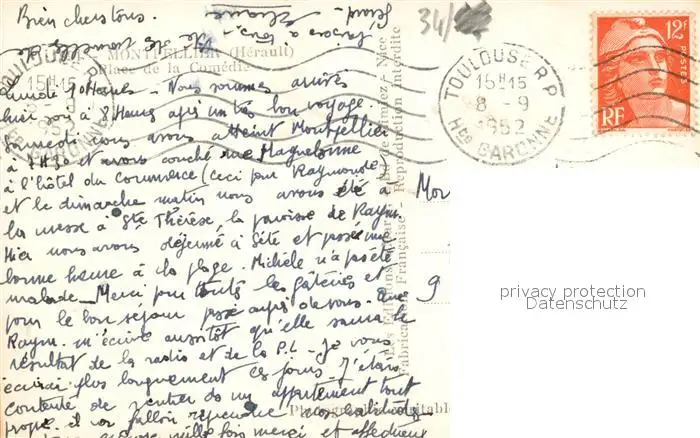 Bien chers tous.
34/
MONTPELLIER (Hérault)
Place de la Comédie
TOULOUSE R.P.
15H15
8 - 9
1952
Hte GARONNE
12F
POSTES
RF
Lundi 10 Heures - Nous sommes arrivés
hier soir à 8 Heures après un très bon voyage.
Samedi nous avons atteint Montpellier
à 7H30 et avons couché rue Maguelonne
à l'hôtel du Commerce (ceci pour Raymonde)
et le dimanche matin nous avons été à
la messe à Ste Thérèse, la paroisse de Raym.
Hier nous avons déjeuné à Sète et passé une
bonne heure à la plage. Michèle n'a pas été
malade. Merci pour toutes les gâteries et
pour le bon séjour passé auprès de vous. Que
Raym. m'écrive aussitôt qu'elle saura le
résultat de la radio et de la P.L. - Je vous
écrirai plus longuement ces jours. J'étais
contente de rentrer ds un appartement tout
propre. il va falloir reprendre nos habitudes
mille fois merci et affectueux
Les Editions
Nice
Fabrication Française - Reproduction interdite
Mon
9
privacy protection
Datenschutz